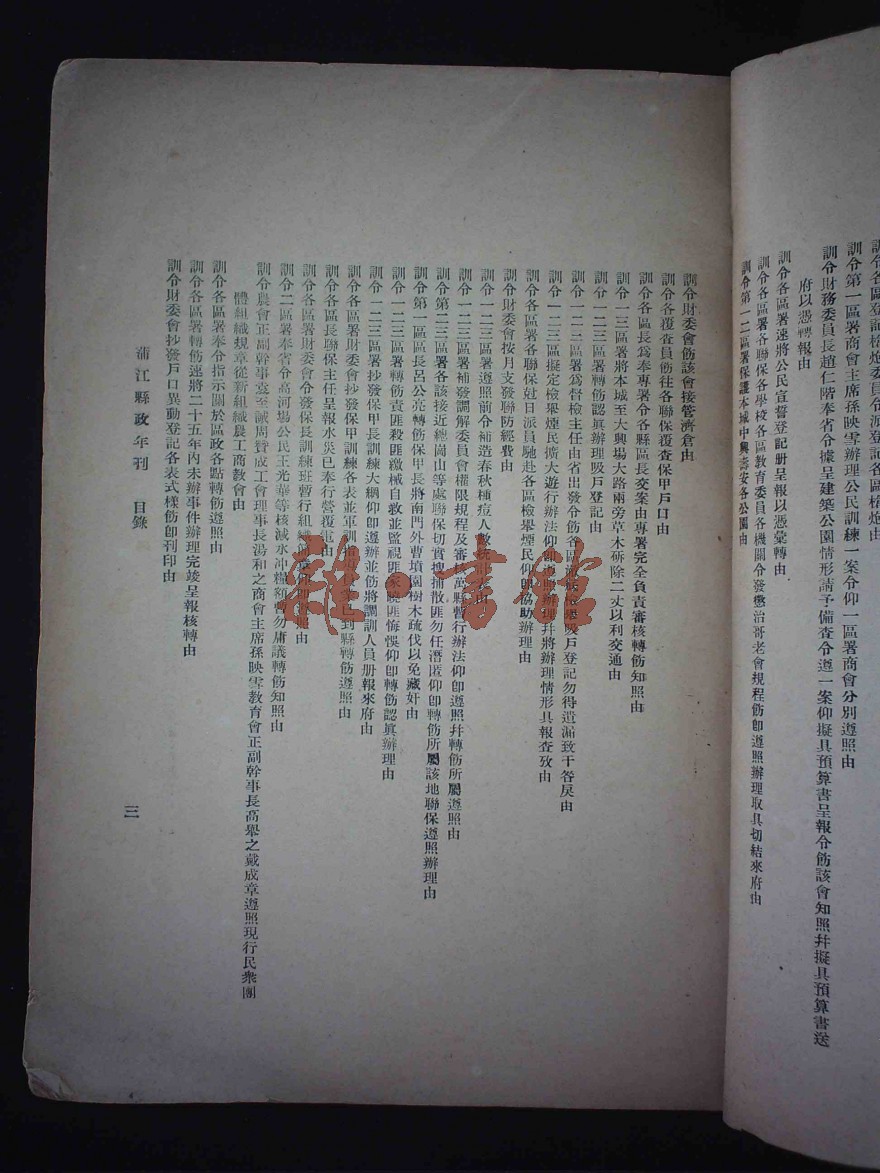 訓令各區登記槍炮委員令派登記各區槍炮由
訓令第一區署商會主席孫映雪辦理公民訓練一案令仰一區署商會分別遵照由
訓令財務委員長趙仁階奉省令據呈建築公園情形請予備查令遵一案仰擬具預算書呈報令飭該會知照幷擬具預算書送
府以憑轉報由
訓令各區署速將公民宣誓登記册呈報以憑彙轉由
訓令各區署各聯保各學校各區教育委員各機關令發懲治哥老會規程飭即遵照辦理取具切結來府由
訓令第一二區署保護本城中興壽安各公園由
訓令財委會飭該會接管濟倉由
訓令各覆查員飭往各聯保覆查保甲戶口由
訓令各區長爲奉專署令各縣區長交案由專署完全負責審核轉飭知照由
訓令一三區署將本城至大興場大路兩旁草木斫除二丈以利交通由
訓令一二三區署轉飭認眞辦理吸戶登記由
訓令一二三區署爲督檢主任由省出發令飭各區
吸戶登記勿得遺漏致干咎戾由
訓令一二三區擬定檢舉煙民擴大遊行辦法仰即
辦理幷將辦理情形具報查攷由
訓令各區署各聯保尅日派員馳赴各區檢舉煙民仰即協助辦理由
訓令財委會按月支發聯防經費由
訓令一二三區署遵照前令補造春秋種痘人數統計表由
訓令一二三區署補發調解委員會權限規程及審核
縣暫行辦法仰即遵照幷轉飭所屬遵照由
訓令第二三區署各該接近總崗山等處聯保切實搜捕散匪勿任潛匿仰即轉飭所屬該地聯保遵照辦理由
訓令第一區區長呂公亮轉飭保甲長將南門外曹墳園樹木疏伐以免藏奸由
訓令一二三區署轉飭責匪殺匪繳械自救並監視匪家曉匪悔悞仰即轉飭認眞辦理由
訓令一二三區署抄發保甲長訓練大綱仰即遵辦並飭將調訓人員册報來府由
訓令各區署財委會抄發保甲訓練各表並軍訓
已到縣轉飭遵照由
訓令二區長聯保主任呈報水災已奉行營覆電由
訓令各區署財委會令發保長訓練班暫行組織
由
訓令二區署奉省令高河場公民王光華等核減水冲糧額
勿庸議轉飭知照由
訓令農會正副幹事袁至誠周贊成工會理事長湯和之商會主席孫映雪教育會正副幹事長高舉之戴成章遵照現行民衆團
體組織規章從新組織農工商教會由
訓令各區署奉令指示關於區政各點轉飭遵照由
訓令各區署轉飭速將二十五年內未辦事件辦理完竣呈報核轉由
訓令財委會抄發戶口異動登記各表式樣飭即刊印由
蒲江縣政年刊 目錄
三
雜·書館